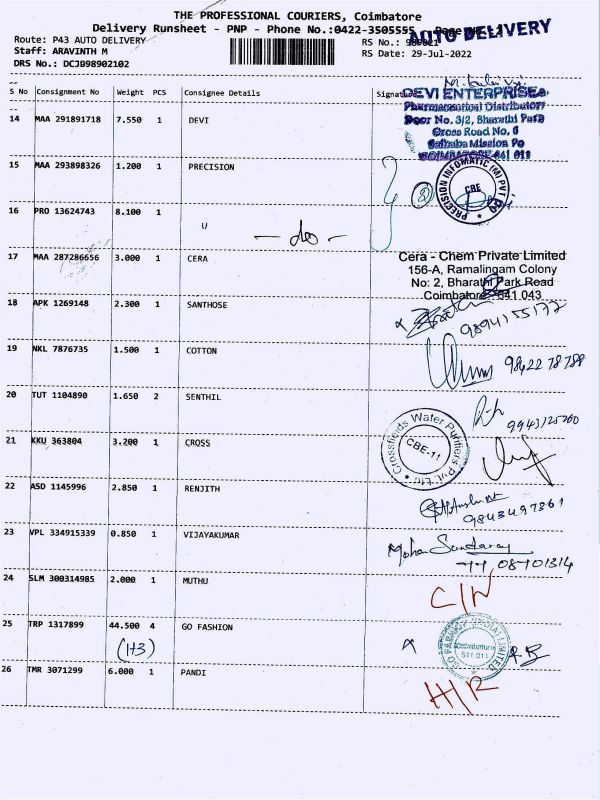 THE PROFESSIONAL COURIERS, Coimbatore
Delivery Runsheet - PNP - Phone No.:0422-3505555
AUTO DELIVERY
Route: P43 AUTO DELIVERY
RS No.:
Staff: ARAVINTH M
RS Date: 29-Jul-2022
DRS No.: DCJB98902102
S No Consignment No Weight PCS Consignee Details Signature
14 MAA 291891718 7.550 1 DEVI
DEVI ENTERPRISES
Pharmaceutical Distributors
Door No. 3/2, Bharathi Park
Cross Road No. 6
Saibaba Mission Po
COIMBATORE-641 011
15 MAA 293898326 1.200 1 PRECISION
PRECISION INFOMATIC (M) PVT
CBE
16 PRO 13624743 8.100 1
U
— do —
17 MAA 287286656 3.000 1 CERA
Cera - Chem Private Limited
156-A, Ramalingam Colony
No: 2, Bharathi Park Road
Coimbatore - 641 043
18 APK 1269148 2.300 1 SANTHOSE
9894155177
19 NKL 7876735 1.500 1 COTTON
98422 78788
20 TUT 1104890 1.650 2 SENTHIL
21 KKU 363804 3.200 1 CROSS
Crossfields Water Purifiers Pvt. Ltd
CBE-11
22 ASD 1145996 2.850 1 RENJITH
9843497361
23 VPL 334915339 0.850 1 VIJAYAKUMAR
Mohana Sundaray
24 SLM 300314985 2.000 1 MUTHU
C/N
25 TRP 1317899 44.500 4 GO FASHION
(1+3)
Coimbatore
641 011
26 TMR 3071299 6.000 1 PANDI
H/R